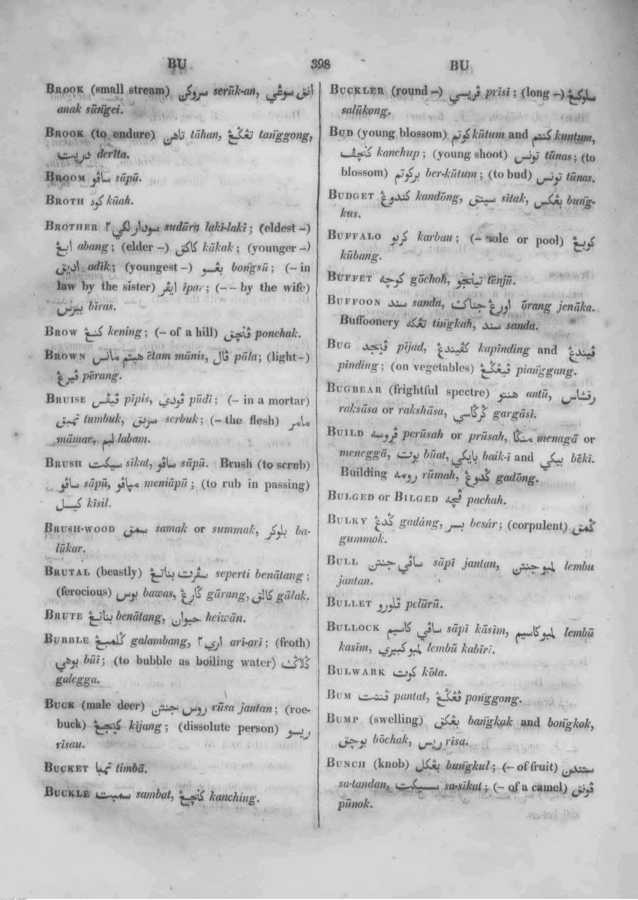 BU 398 BU
BROOK (small stream) سروكن serūk-an, انق سوڠي
anak sūngei.
BROOK (to endure) تاهن tāhan, تڠݢڠ tanggong,
دريت derīta.
BROOM ساڤو sāpū.
BROTH كوه kūah.
BROTHER سودار لكي٢ sudāra laki-laki; (eldest –)
ابڠ abang; (elder –) كاكق kākak; (younger –)
اديق adik; (youngest –) بڠسو bongsū; (– in
law by the sister) ايڤر īpar; (– – by the wife)
بيرس bīras.
BROW كنڠ kening; (– of a hill) ڤنچق ponchak.
BROWN هيتم مانس ētam mānis, ڤال pāla; (light–)
ڤيرڠ pērang.
BRUISE ڤيڤس pīpis, ڤودي pūdi; (– in a mortar)
تمبق tumbuk, سربق serbuk; (– the flesh) مامر
māmar, لبم labam.
BRUSH سيكت sīkat, ساڤو sāpū. Brush (to scrub)
ساڤو sāpū, مپاڤو meniāpū; (to rub in passing)
كيسل kīsil.
BRUSH-WOOD سمق samak or summak, بلوكر ba-
lūkar.
BRUTAL (beastly) سڤرت بناتڠ seperti benātang;
(ferocious) بوس bawas, ݢارڠ gārang, ݢالق gālak.
BRUTE بناتڠ benātang, حيوان heiwān.
BUBBLE ݢلمبڠ galambang, اري٢ ari-ari; (froth)
بوهي būi; (to bubble as boiling water) ݢلݢق
galegga.
BUCK (male deer) روس جنتن rūsa jantan; (roe-
buck) كيجڠ kijang; (dissolute person) ريسو
risau.
BUCKET تمبا timbā.
BUCKLE سمبت sambat, كنچڠ kanching.
BUCKLER (round –) ڤريسي prisi; (long –) سلوكڠ
salūkong.
BUD (young blossom) كوتم kūtum and كنتم kuntum,
كنچڤ kanchup; (young shoot) تونس tūnas; (to
blossom) بركوتم ber-kūtum; (to bud) تونس tūnas.
BUDGET كندوڠ kandōng, سيتق sitak, بڠكس bung-
kus.
BUFFALO كربو karbau; (– sole or pool) كوبڠ
kūbang.
BUFFET كوچه gōchoh, تينجو tēnjū.
BUFFOON سند sanda, اورڠ جناك ōrang jenāka.
Buffoonery تڠكه tingkah, سند sanda.
BUG ڤيجد pījad, كڤيندڠ kapīnding and ڤيندڠ
pīnding; (on vegetables) ڤيڠݢڠ pianggang.
BUGBEAR (frightful spectre) هنتو antū, رقشاس
raksāsa or rakshāsa, ݢرݢاسي gargāsi.
BUILD ڤروسه perūsah or prūsah, منݢا menagā or
meneggā, بوت būat, بايكي baik-i and بيكي bēki.
Building رومه rūmah, ݢدوڠ gadōng.
BULGED or BILGED ڤچه pachah.
BULKY ݢدڠ gadàng, بسر besár; (corpulent) ݢمق
gummok.
BULL ساڤي جنتن sāpi jantan, لمبو جنتن lembu
jantan.
BULLET ڤلورو pelūrū.
BULLOCK ساڤي كاسيم sāpi kāsim, لمبو كاسيم lembū
kasim, لمبو كبيري lembū kabīri.
BULWARK كوت kōta.
BUM ڤنتت pantat, ڤڠݢڠ ponggong.
BUMP (swelling) بڠكق bangkak and bongkok,
بوچق bōchak, ريس risa.
BUNCH (knob) بڠكل bungkul; (– of fruit) ستندن
sa-tandan, سسيكت sa-sikat; (– of a camel) ڤونق
pūnok.